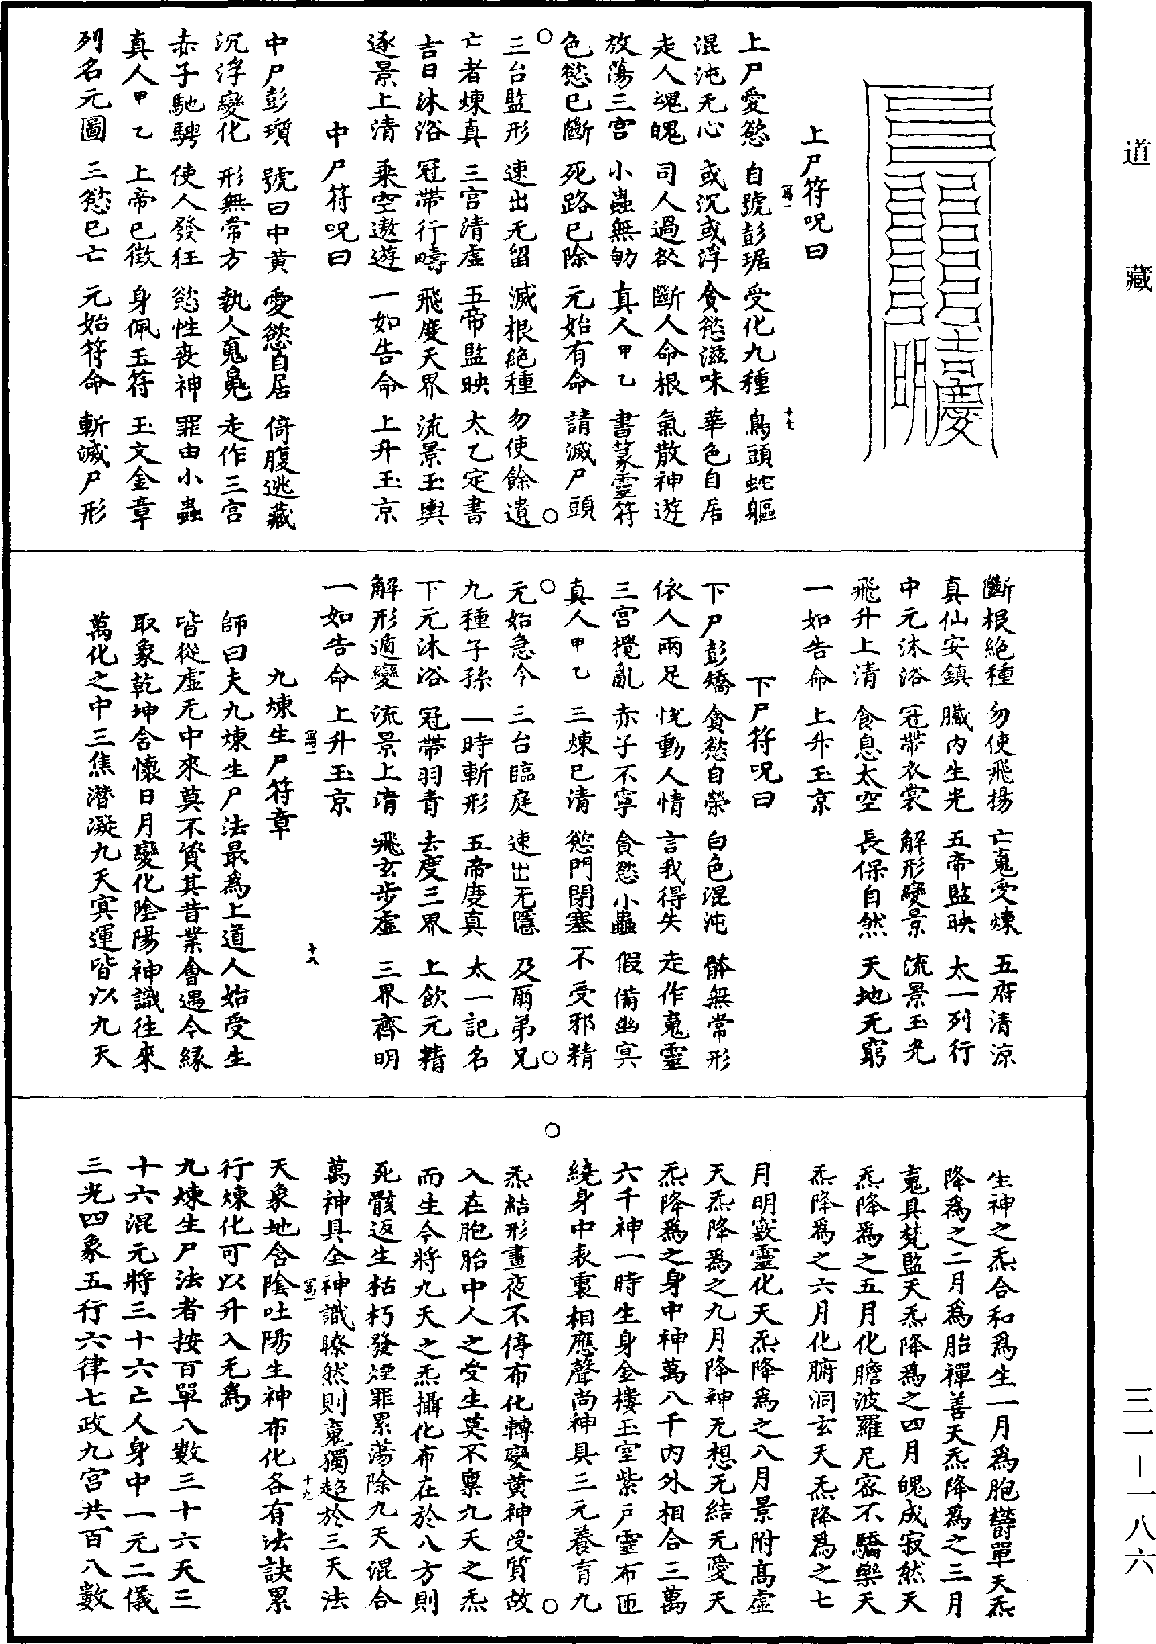 道藏
上尸符呪曰
上尸愛慾　自號彭琚　受化九種　鳥頭蛇軀
混沌无心　或沉或浮　貪慾滋味　華色自居
走人魂魄　司人過欲　斷人命根　氣散神遊
放蕩三宮　小蟲無劬　真人甲乙　書篆靈符
色慾已斷　死路已除　元始有命　請滅尸頭
三台監形　速出无留　滅根絕種　勿使餘遺
亡者煉真　三宮清虛　五帝監映　太乙定書
吉日沐浴　冠帶行疇　飛度天界　流景玉輿
逐景上清　乘空遨遊　一如告命　上升玉京
中尸符呪曰
中尸彭瓆　號曰中黃　愛慾自居　倚腹逃藏
沉浮變化　形無常方　執人䰟䰟　走作三宮
赤子馳騁　使人發狂　慾性喪神　罪由小蟲
真人甲乙　上帝已徵　身佩玉符　玉文金章
列名元圖　三慾已亡　元始符命　斬滅尸形
十七
斷根絕種　勿使飛揚　亡䰟受煉　五府清涼
真仙安鎮　臟內生光　五帝監映　太一列行
中元沐浴　冠帶衣裳　解形變景　流景玉光
飛升上清　食息太空　長保自然　天地无窮
一如告命　上升玉京
下尸符呪曰
下尸彭矯　貪慾自榮　白色混沌　骵無常形
依人兩足　恱動人情　言我得失　走作䰟靈
三宮攪亂　赤子不寧　貪慾小蟲　假備幽冥
真人甲乙　三煉已清　慾門閉塞　不受邪精
元始急令　三台臨庭　速出无隱　及爾弟兄
九種子孫　一時斬形　五帝度真　太一記名
下元沐浴　冠帶羽青　去度三界　上飲元精
解形遁變　流景上清　飛玄步虛　三界齊明
一如告命　上升玉京
九煉生尸符章
十八
師曰夫九煉生尸法最為上道人始受生
皆從虛无中來莫不資其昔業會遇今緣
取象乾坤含懷日月變化陰陽神識往來
萬化之中三焦潛凝九天冥運皆以九天
生神之炁合和為生一月為胞鬱單天炁
降為之二月為胎禪善天炁降為之三月
䰟具梵監天炁降為之四月魄成寂然天
炁降為之五月化膽波羅尼密不驕樂天
炁降為之六月化腑洞玄天炁降為之七
月明竅靈化天炁降為之八月景附高虛
天炁降為之九月降神无想无結无愛天
炁降為之身中神萬八千內外相合三萬
六千神一時生身金樓玉室紫戶靈布匝
繞身中表裏相應聲尚神具三元養育九
炁結形晝夜不停布化轉變黃神受質故
入在胞胎中人之受生莫不稟九天之炁
而生今將九天之炁攝化布在於八方則
死骸返生枯朽發煙罪累蕩除九天混合
萬神具全神識瞭然則䰟獨超於三天法
十九
天象地含陰吐陽生神布化各有法訣累
行煉化可以升入无為
九煉生尸法者按百單八數三十六天三
十六混元將三十六亡人身中一元二儀
三光四象五行六律七政九宮共百八數
三一—一八六